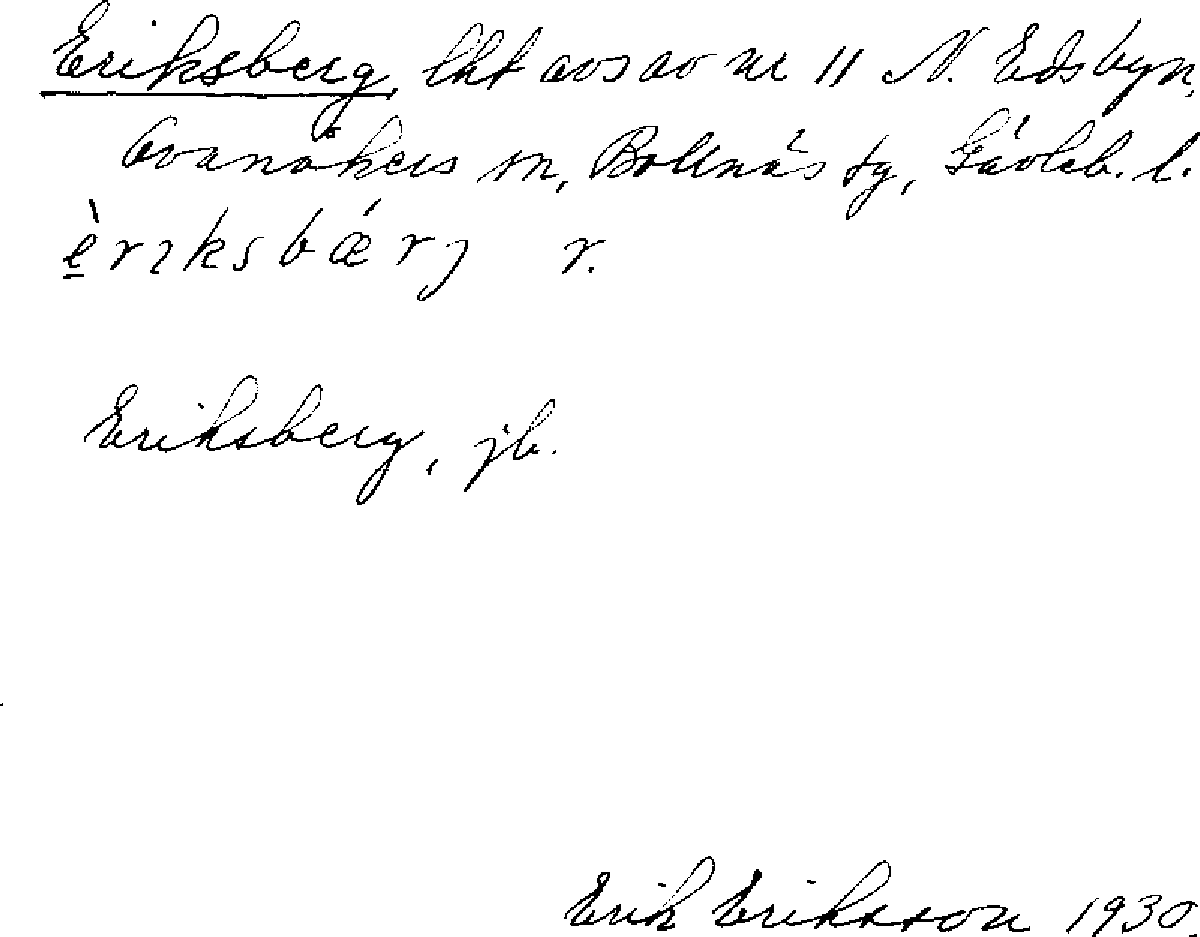 Eriksberg, lht avs av nr 11 N. Edsbyn,
Ovanåkers sn, Bollnäs tg, Gävleb. l.
è̱rıksbǽrj r.
Eriksberg, jb.
Erik Eriksson 1930.